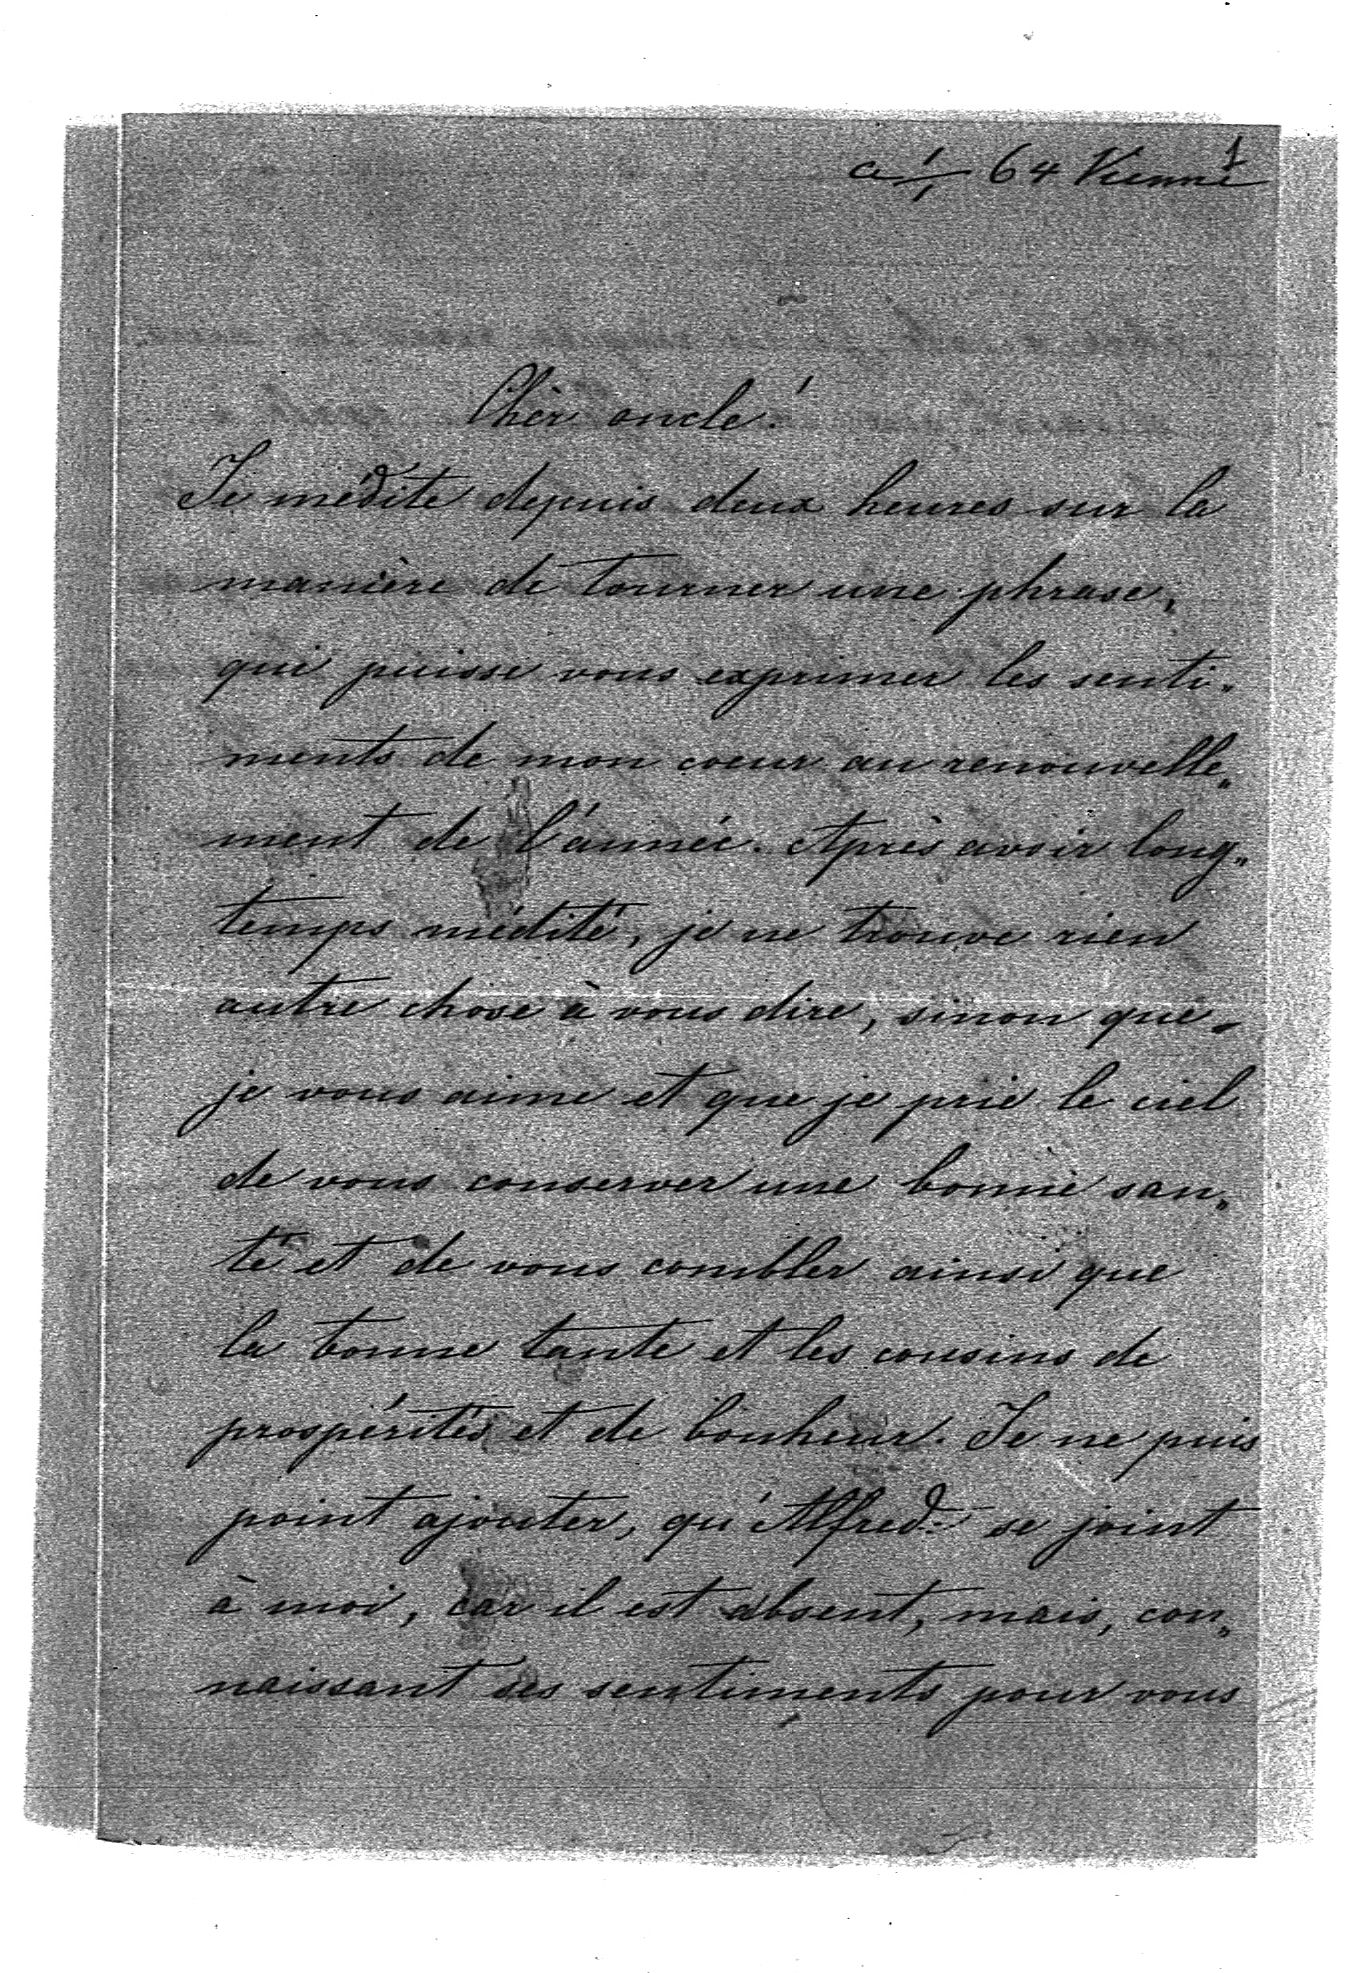 1
a 1/1 64 Vienne
Chèr oncle!
Je médite depuis deux heures sur la
manière de tourner une phrase,
qui puisse vous exprimer les senti-
ments de mon coeur au renouvelle„
ment de l'année. Après avoir long„
temps médité, je ne trouve rien
autre chose à vous dire, sinon que
je vous aime et que je prie le ciel
de vous conserver une bonne san„
té et de vous combler ainsi que
la bonne tante et les cousins de
prospérités et de bonheur. Je ne puis
point ajouter, qu'Alfred se joint
à moi, car il est absent, mais, con„
naissant ses sentiments pour vous